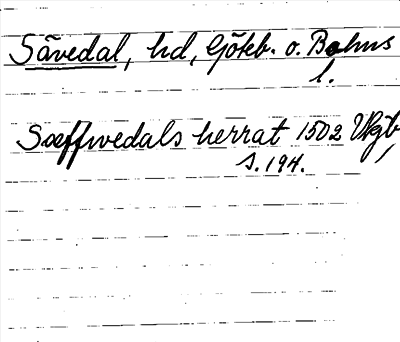 Sävedal, hd, Göteb. o. Bohus
l.
Sæffwedals herrat 1502 Vgtb,
s. 194.